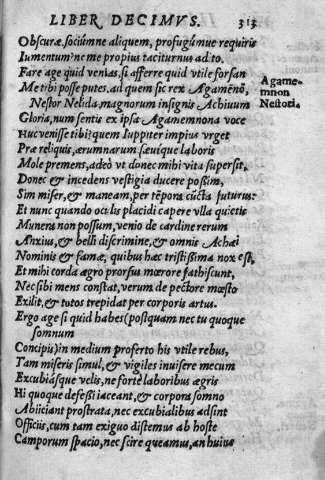 LIBER DECIMVS. 313
Obscuræ, sociúmne aliquem, profugúmue requiris
Iumentum? ne me propius taciturnus ad to.
Fare age quid venias, si afferre quid vtile forsan
Me tibi posse putes, ad quem sic rex Agamenō,
Nestor Nelida, magnorum insignis Achiuum
Gloria, num sentis ex ipsa Agamemnona voce
Huc venisse tibi? quem Iuppiter impius vrget
Præ reliquis, ærumnarum sæuique laboris
Mole premens, adeò vt donec mihi vita supersit,
Donec & incedens vestigia ducere possim,
Sim miser, & maneam, per tēpora cūcta futurus:
Et nunc quando oculis placidi capere vlla quietis
Munera non possum, venio de cardine rerum
Anxius, & belli discrimine, & omnis Achæi
Nominis & famæ, quibus hæc tristissima nox est,
Et mihi corda ægro prorsus mœrore fathiscunt,
Nec sibi mens constat, verum de pectore mœsto
Exilit, & totos trepidat per corporis artus.
Ergo age si quid habes (postquam nec tu quoque
somnum
Concipis) in medium proferto his vtile rebus,
Tam miseris simul, & vigiles inuisere mecum
Excubiásque velis, ne forte laboribus ægris
Hi quoque defessi iaceant, & corpora somno
Abiiciant prostrata, nec excubialibus adsint
Officiis, cum tam exiguo distemus ab hoste
Camporum spacio, nec scire queamus, an huius
Agame-
mnon
Nestori.